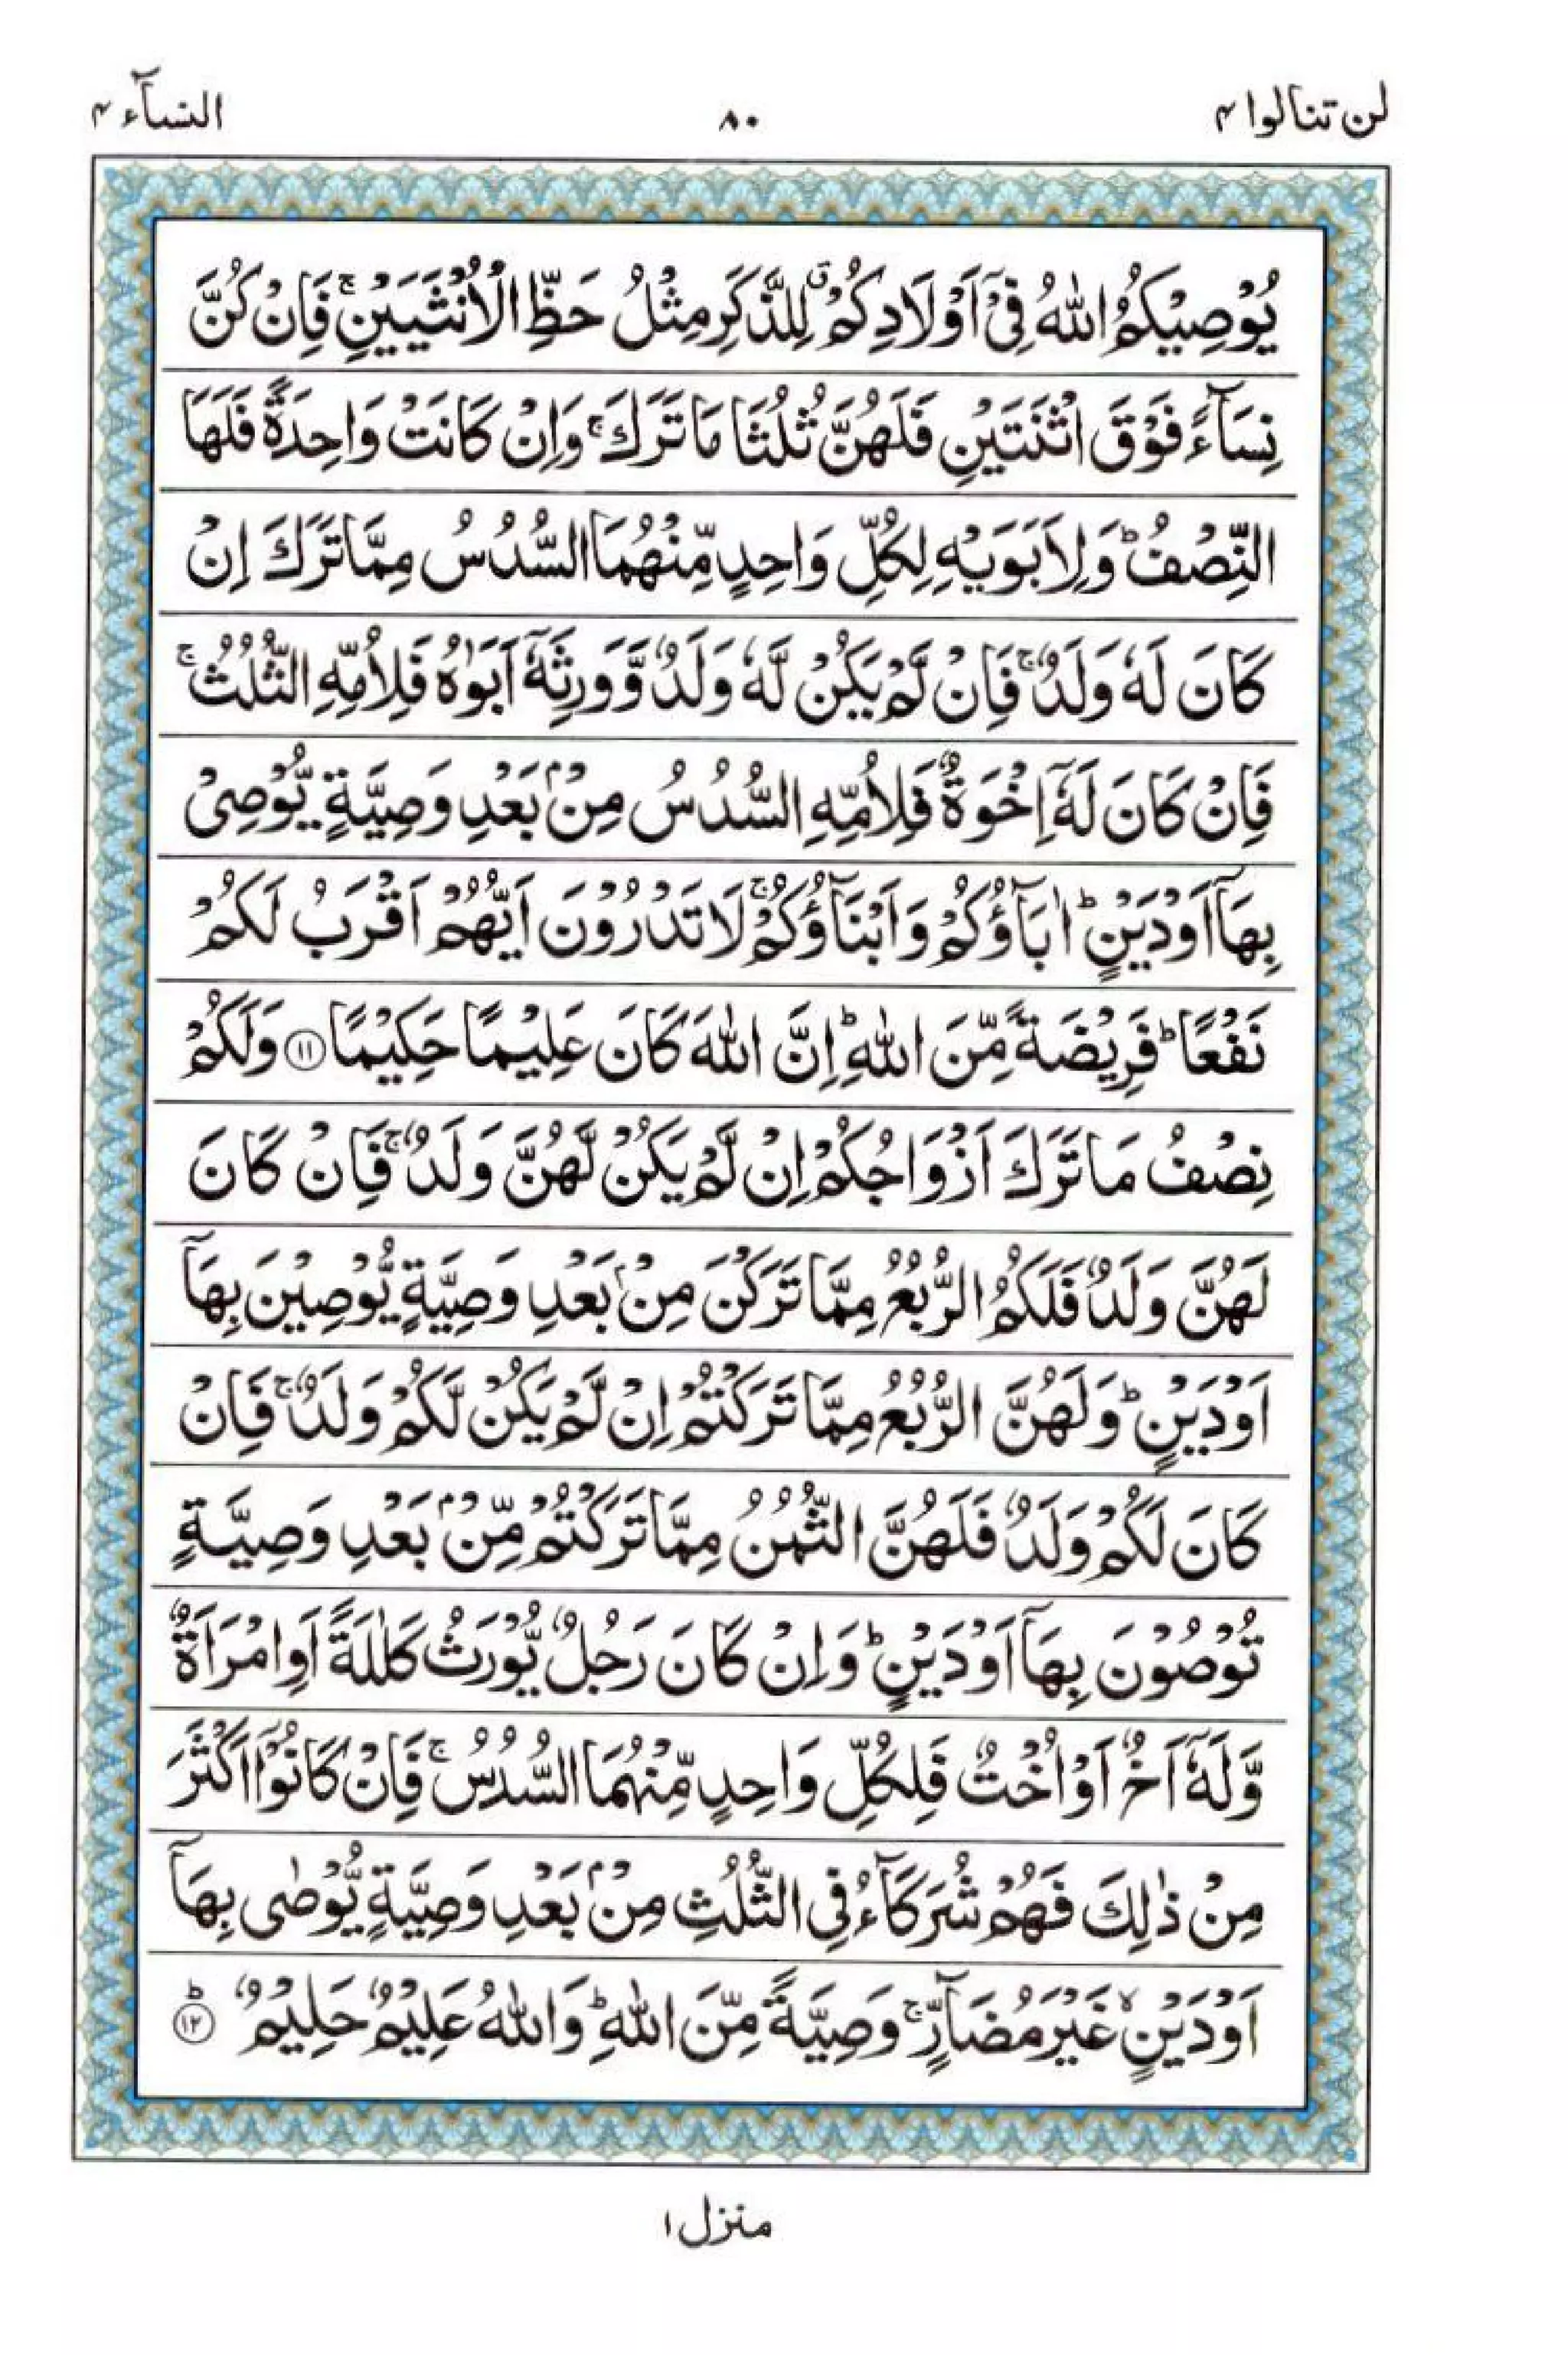 لن تنالوا ۴
۸۰
النسآء ۴
يُوْصِيْكُمُ اللّٰهُ فِىْٓ اَوْلَادِكُمْ ۗ لِلذَّكَرِ مِثْلُ حَظِّ الْاُنْثَيَيْنِ ۚ فَاِنْ كُنَّ
نِسَآءً فَوْقَ اثْنَتَيْنِ فَلَهُنَّ ثُلُثَا مَا تَرَكَ ۚ وَاِنْ كَانَتْ وَاحِدَةً فَلَهَا
النِّصْفُ ؕ وَلِاَبَوَيْهِ لِكُلِّ وَاحِدٍ مِّنْهُمَا السُّدُسُ مِمَّا تَرَكَ اِنْ
كَانَ لَهٗ وَلَدٌ ۚ فَاِنْ لَّمْ يَكُنْ لَّهٗ وَلَدٌ وَّوَرِثَهٗٓ اَبَوٰهُ فَلِاُمِّهِ الثُّلُثُ ۚ
فَاِنْ كَانَ لَهٗٓ اِخْوَةٌ فَلِاُمِّهِ السُّدُسُ مِنْۢ بَعْدِ وَصِيَّةٍ يُّوْصِىْ
بِهَآ اَوْ دَيْنٍ ؕ اٰبَآؤُكُمْ وَاَبْنَآؤُكُمْ ۚ لَا تَدْرُوْنَ اَيُّهُمْ اَقْرَبُ لَكُمْ
نَفْعًا ؕ فَرِيْضَةً مِّنَ اللّٰهِ ؕ اِنَّ اللّٰهَ كَانَ عَلِيْمًا حَكِيْمًا ۝۱۱ وَلَكُمْ
نِصْفُ مَا تَرَكَ اَزْوَاجُكُمْ اِنْ لَّمْ يَكُنْ لَّهُنَّ وَلَدٌ ۚ فَاِنْ كَانَ
لَهُنَّ وَلَدٌ فَلَكُمُ الرُّبُعُ مِمَّا تَرَكْنَ مِنْۢ بَعْدِ وَصِيَّةٍ يُّوْصِيْنَ بِهَآ
اَوْ دَيْنٍ ؕ وَلَهُنَّ الرُّبُعُ مِمَّا تَرَكْتُمْ اِنْ لَّمْ يَكُنْ لَّكُمْ وَلَدٌ ۚ فَاِنْ
كَانَ لَكُمْ وَلَدٌ فَلَهُنَّ الثُّمُنُ مِمَّا تَرَكْتُمْ مِّنْۢ بَعْدِ وَصِيَّةٍ
تُوْصُوْنَ بِهَآ اَوْ دَيْنٍ ؕ وَاِنْ كَانَ رَجُلٌ يُّوْرَثُ كَلٰلَةً اَوِ امْرَاَةٌ
وَّلَهٗٓ اَخٌ اَوْ اُخْتٌ فَلِكُلِّ وَاحِدٍ مِّنْهُمَا السُّدُسُ ۚ فَاِنْ كَانُوْٓا اَكْثَرَ
مِنْ ذٰلِكَ فَهُمْ شُرَكَآءُ فِى الثُّلُثِ مِنْۢ بَعْدِ وَصِيَّةٍ يُّوْصٰى بِهَآ
اَوْ دَيْنٍ ۙ غَيْرَ مُضَآرٍّ ۚ وَصِيَّةً مِّنَ اللّٰهِ ؕ وَاللّٰهُ عَلِيْمٌ حَلِيْمٌ ۝۱۲ؕ
منزل ۱